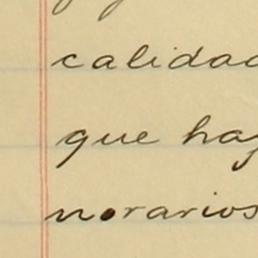 calidad
que hay
norarios